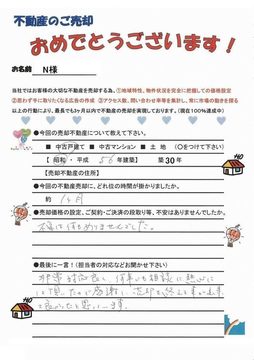 不動産のご売却
おめでとうございます！
お名前 N様
当社ではお客様の大切な不動産を売却する為、①地域特性、物件状況を完全に把握しての価格設定
②思わず手に取りたくなる広告の作成 ③アクセス数、問い合わせ率等を集計し、常に市場の動きを探る
以上の行動により、最長でも3か月以内で不動産の売却を実現しております。(現在100％達成中)
●今回の売却不動産について教えて下さい。
■ 中古戸建て ■ 中古マンション ■ 土地 (○をつけて下さい)
【 昭和・平成 56年建築】 築30年
【売却不動産の住所】
●今回の不動産売却に、どれ位の時間が掛かりましたか。
約 1ヶ月
●売却価格の設定、ご契約・ご決済の段取り等、不安はありませんでしたか。
ありませんでした。
●最後に一言！(担当者の対応などお聞かせ下さい)
非常に対応良く、何事にも相談に熱心に
して頂いたので感謝し、売却を終える事が出来
て良かったと思います。